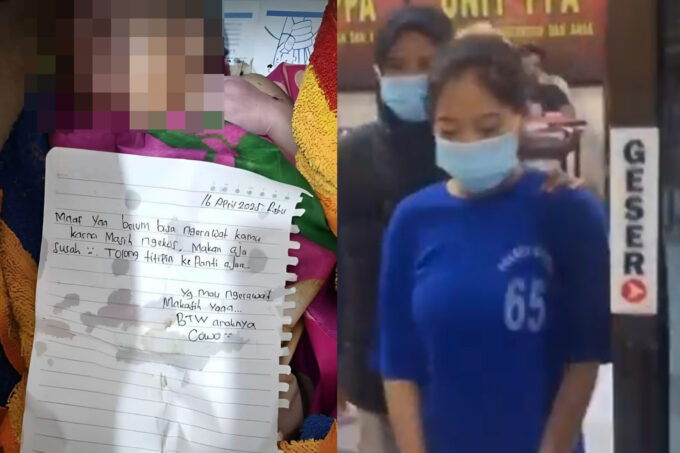 16 April 2025 Rabu
Maaf yaa belum bisa ngerawat kamu
karna Masih ngekos, Makan aja
susah :: Tolong titipin ke Panti ajaa...
Yg Mau ngerawat
Makasih yaaa...
BTW anaknya
Cowo ::
UNIT PPA
GESER
65